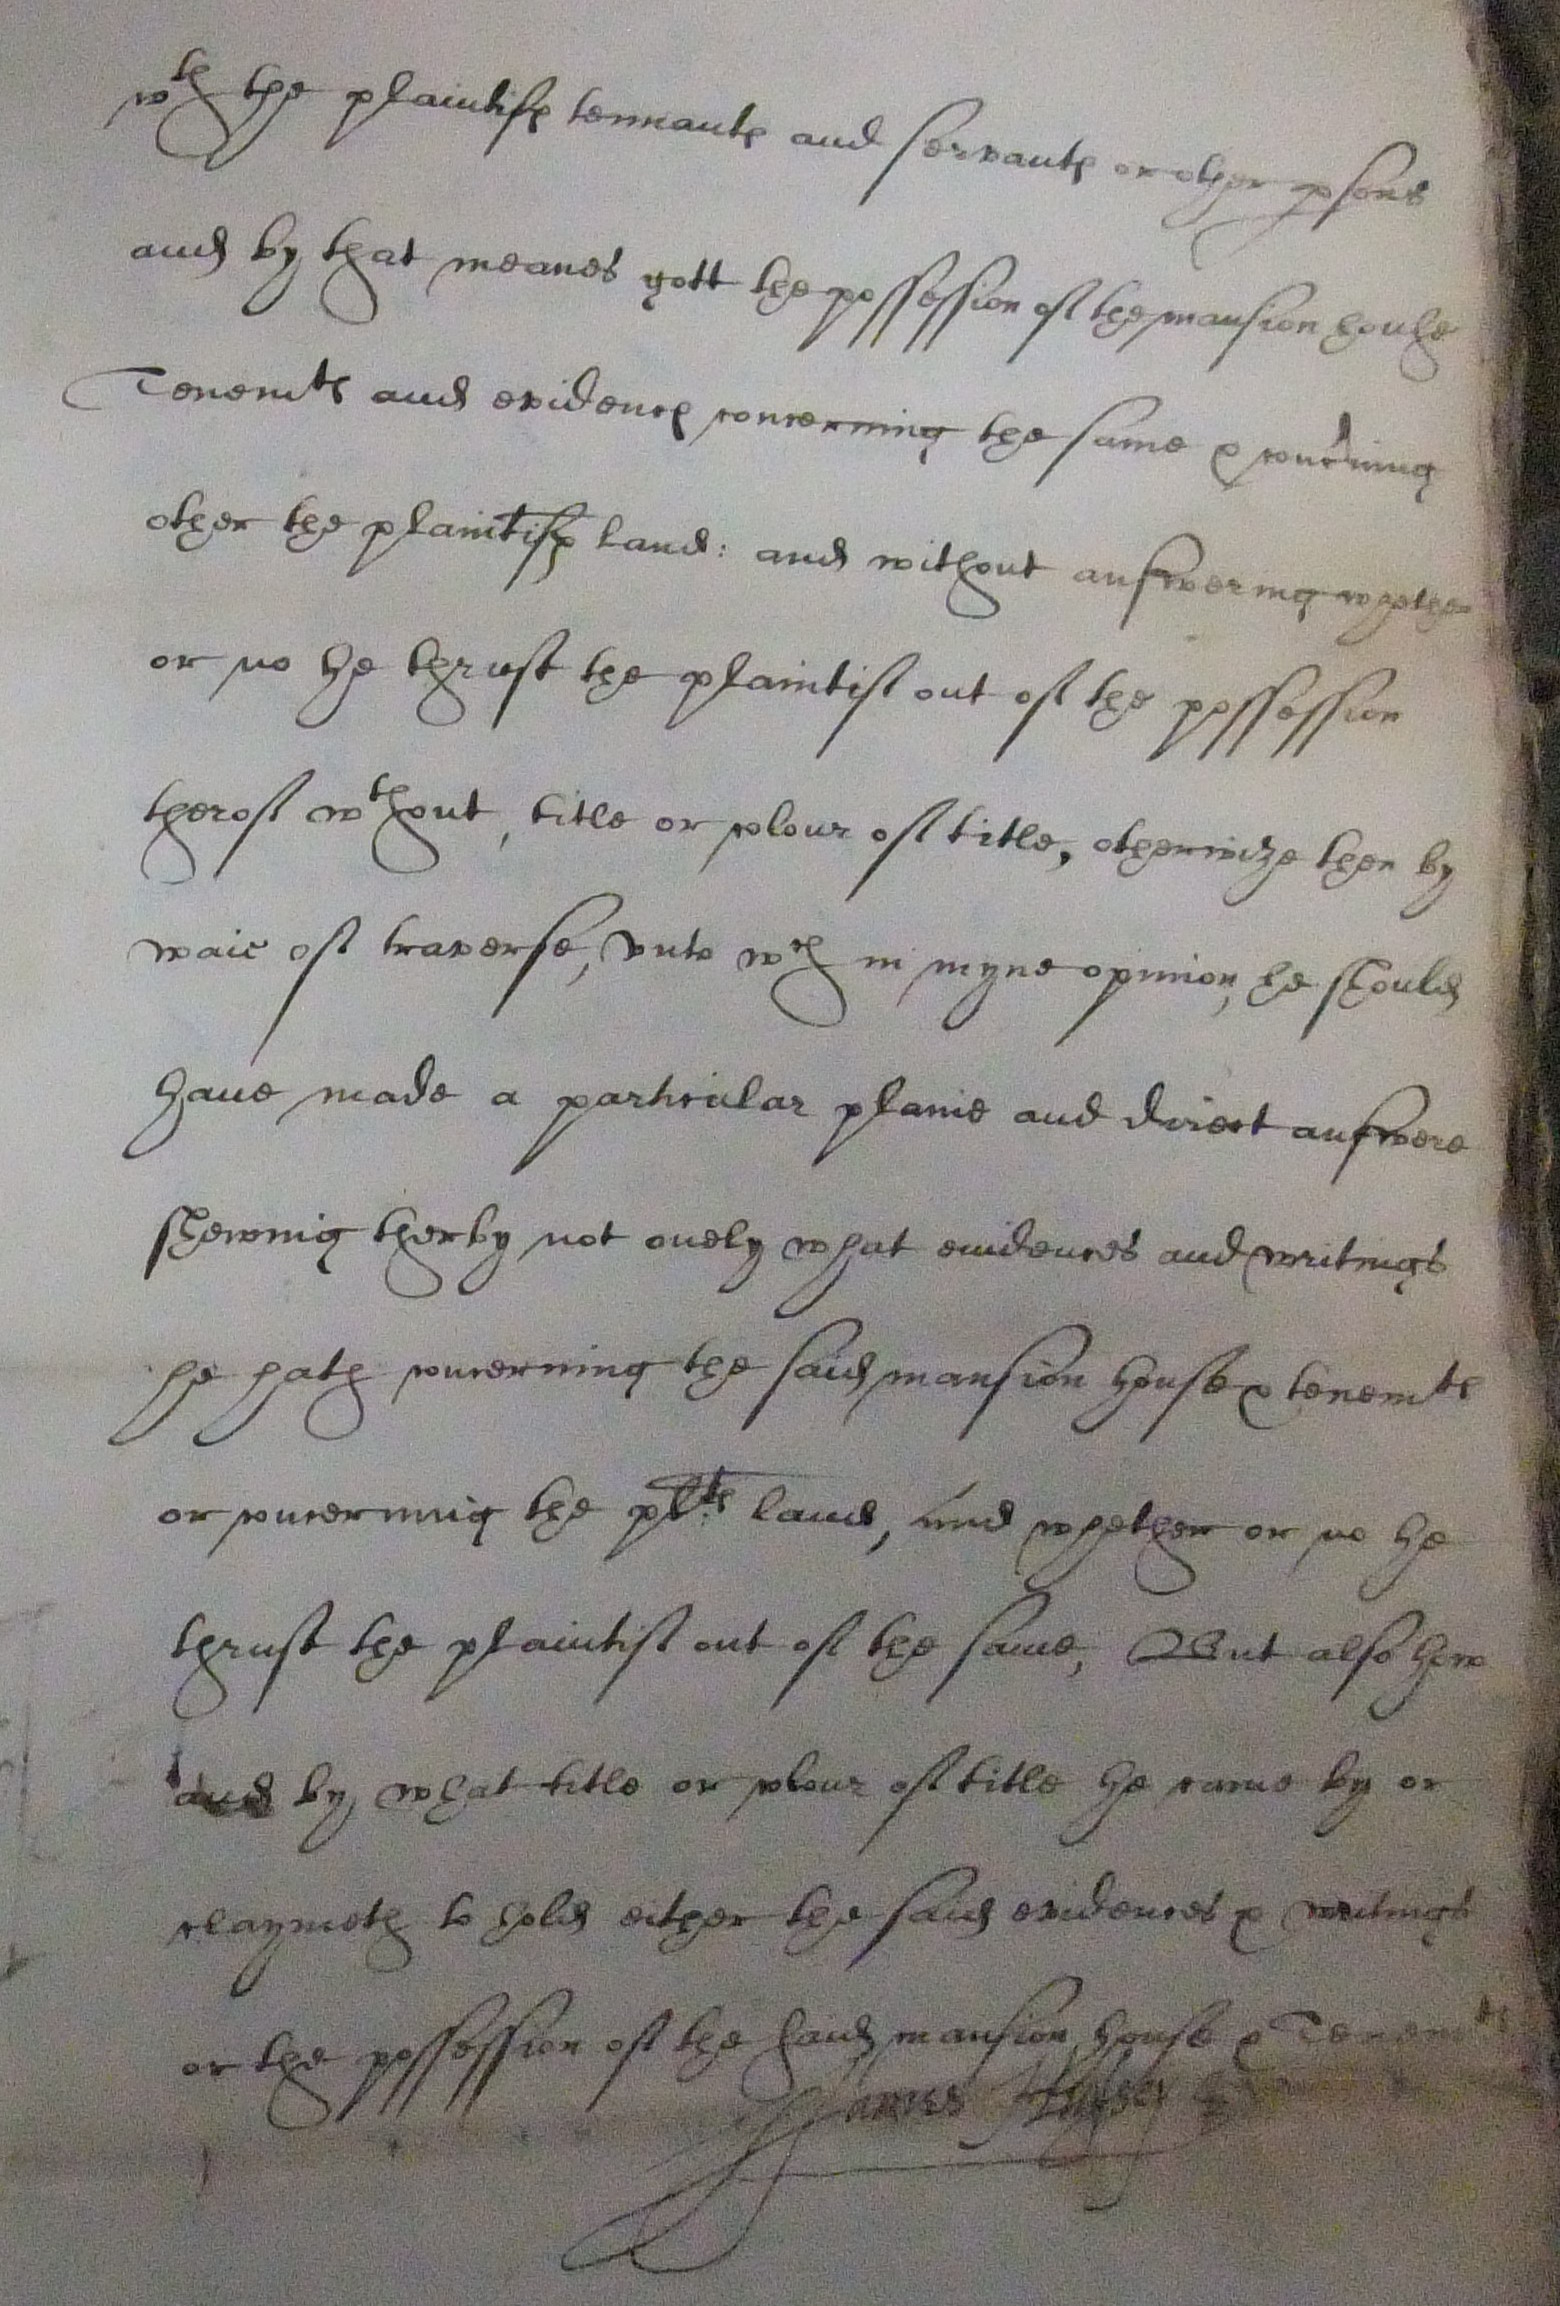 wth the plaintifes tennantes and servantes or other psons
and by that meanes gott the possession of the mansion house
Tenemtes and evidences concerning the same & concrning
other the plaintifes land: and without answering whether
or no he thrust the plaintif out of the possession
therof wthout, title or colour of title, otherwize then by
waie of traverse, vnto wch in myne opinion, he should
haue made a particular plaine and direct answere
shewing therby not onely what euidences and writings
he hath concerning the said mansion house & tenemtes
or concerning the pltes land, And whether or no he
thrust the plaintif out of the same, But also how
and by what title or colour of title he came by or
claymeth to hold either the said evidences & writings
or the possession of the said mansion house & Tenemtes
James Hussey